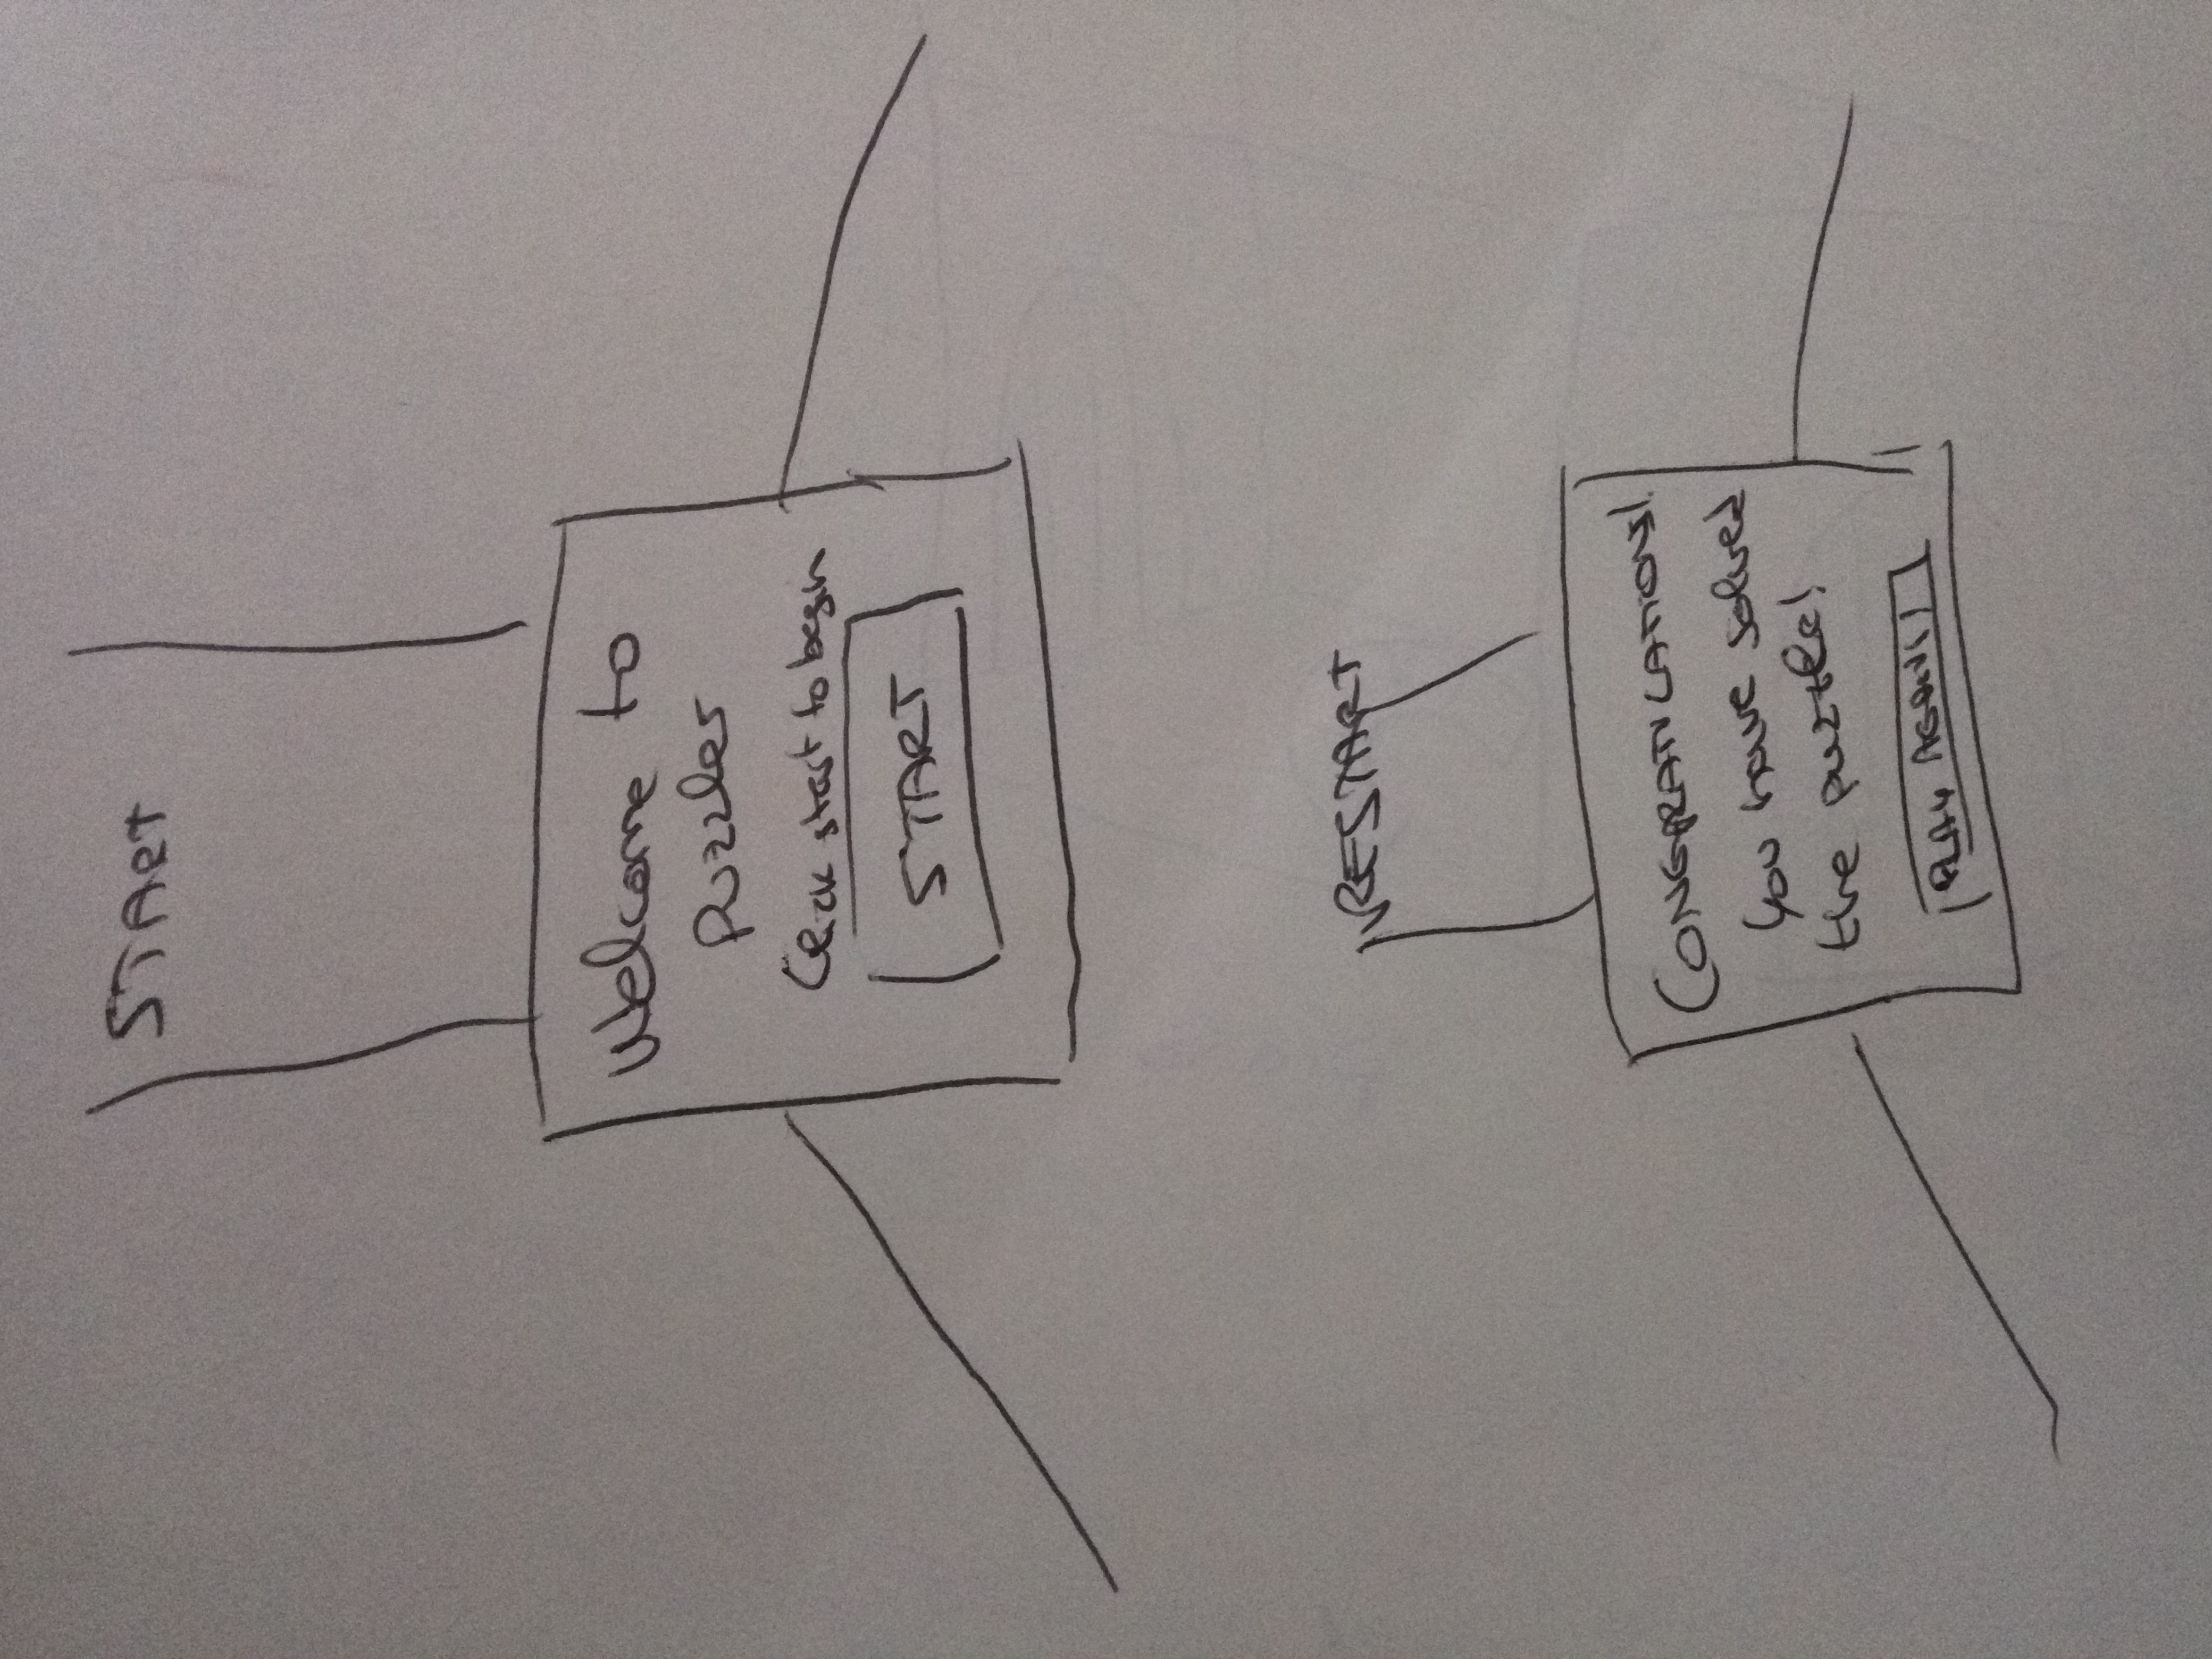 START
Welcome to
puzzles
Click start to begin
START
RESTART
CONGRATULATIONS!
You have solved
the puzzle!
PLAY AGAIN!!